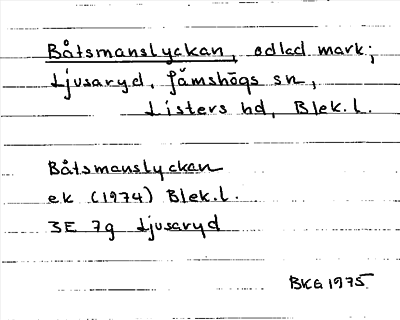 Båtsmanslyckan, odlad mark;
Ljusaryd, Jämshögs sn,
Listers hd, Blek.l.
Båtsmanslyckan
ek (1974) Blek.l.
3E 7g Ljusaryd
BKG 1975